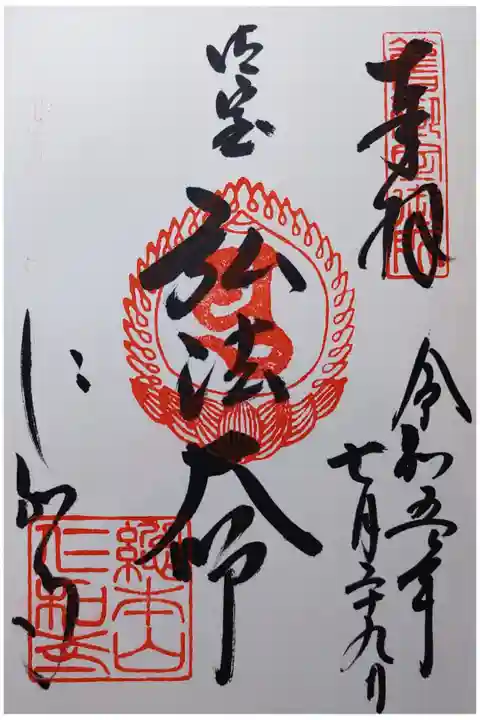 奉拝
令和五年
七月二十九日
御室
弘法大師
にわじ
總本山
仁和寺